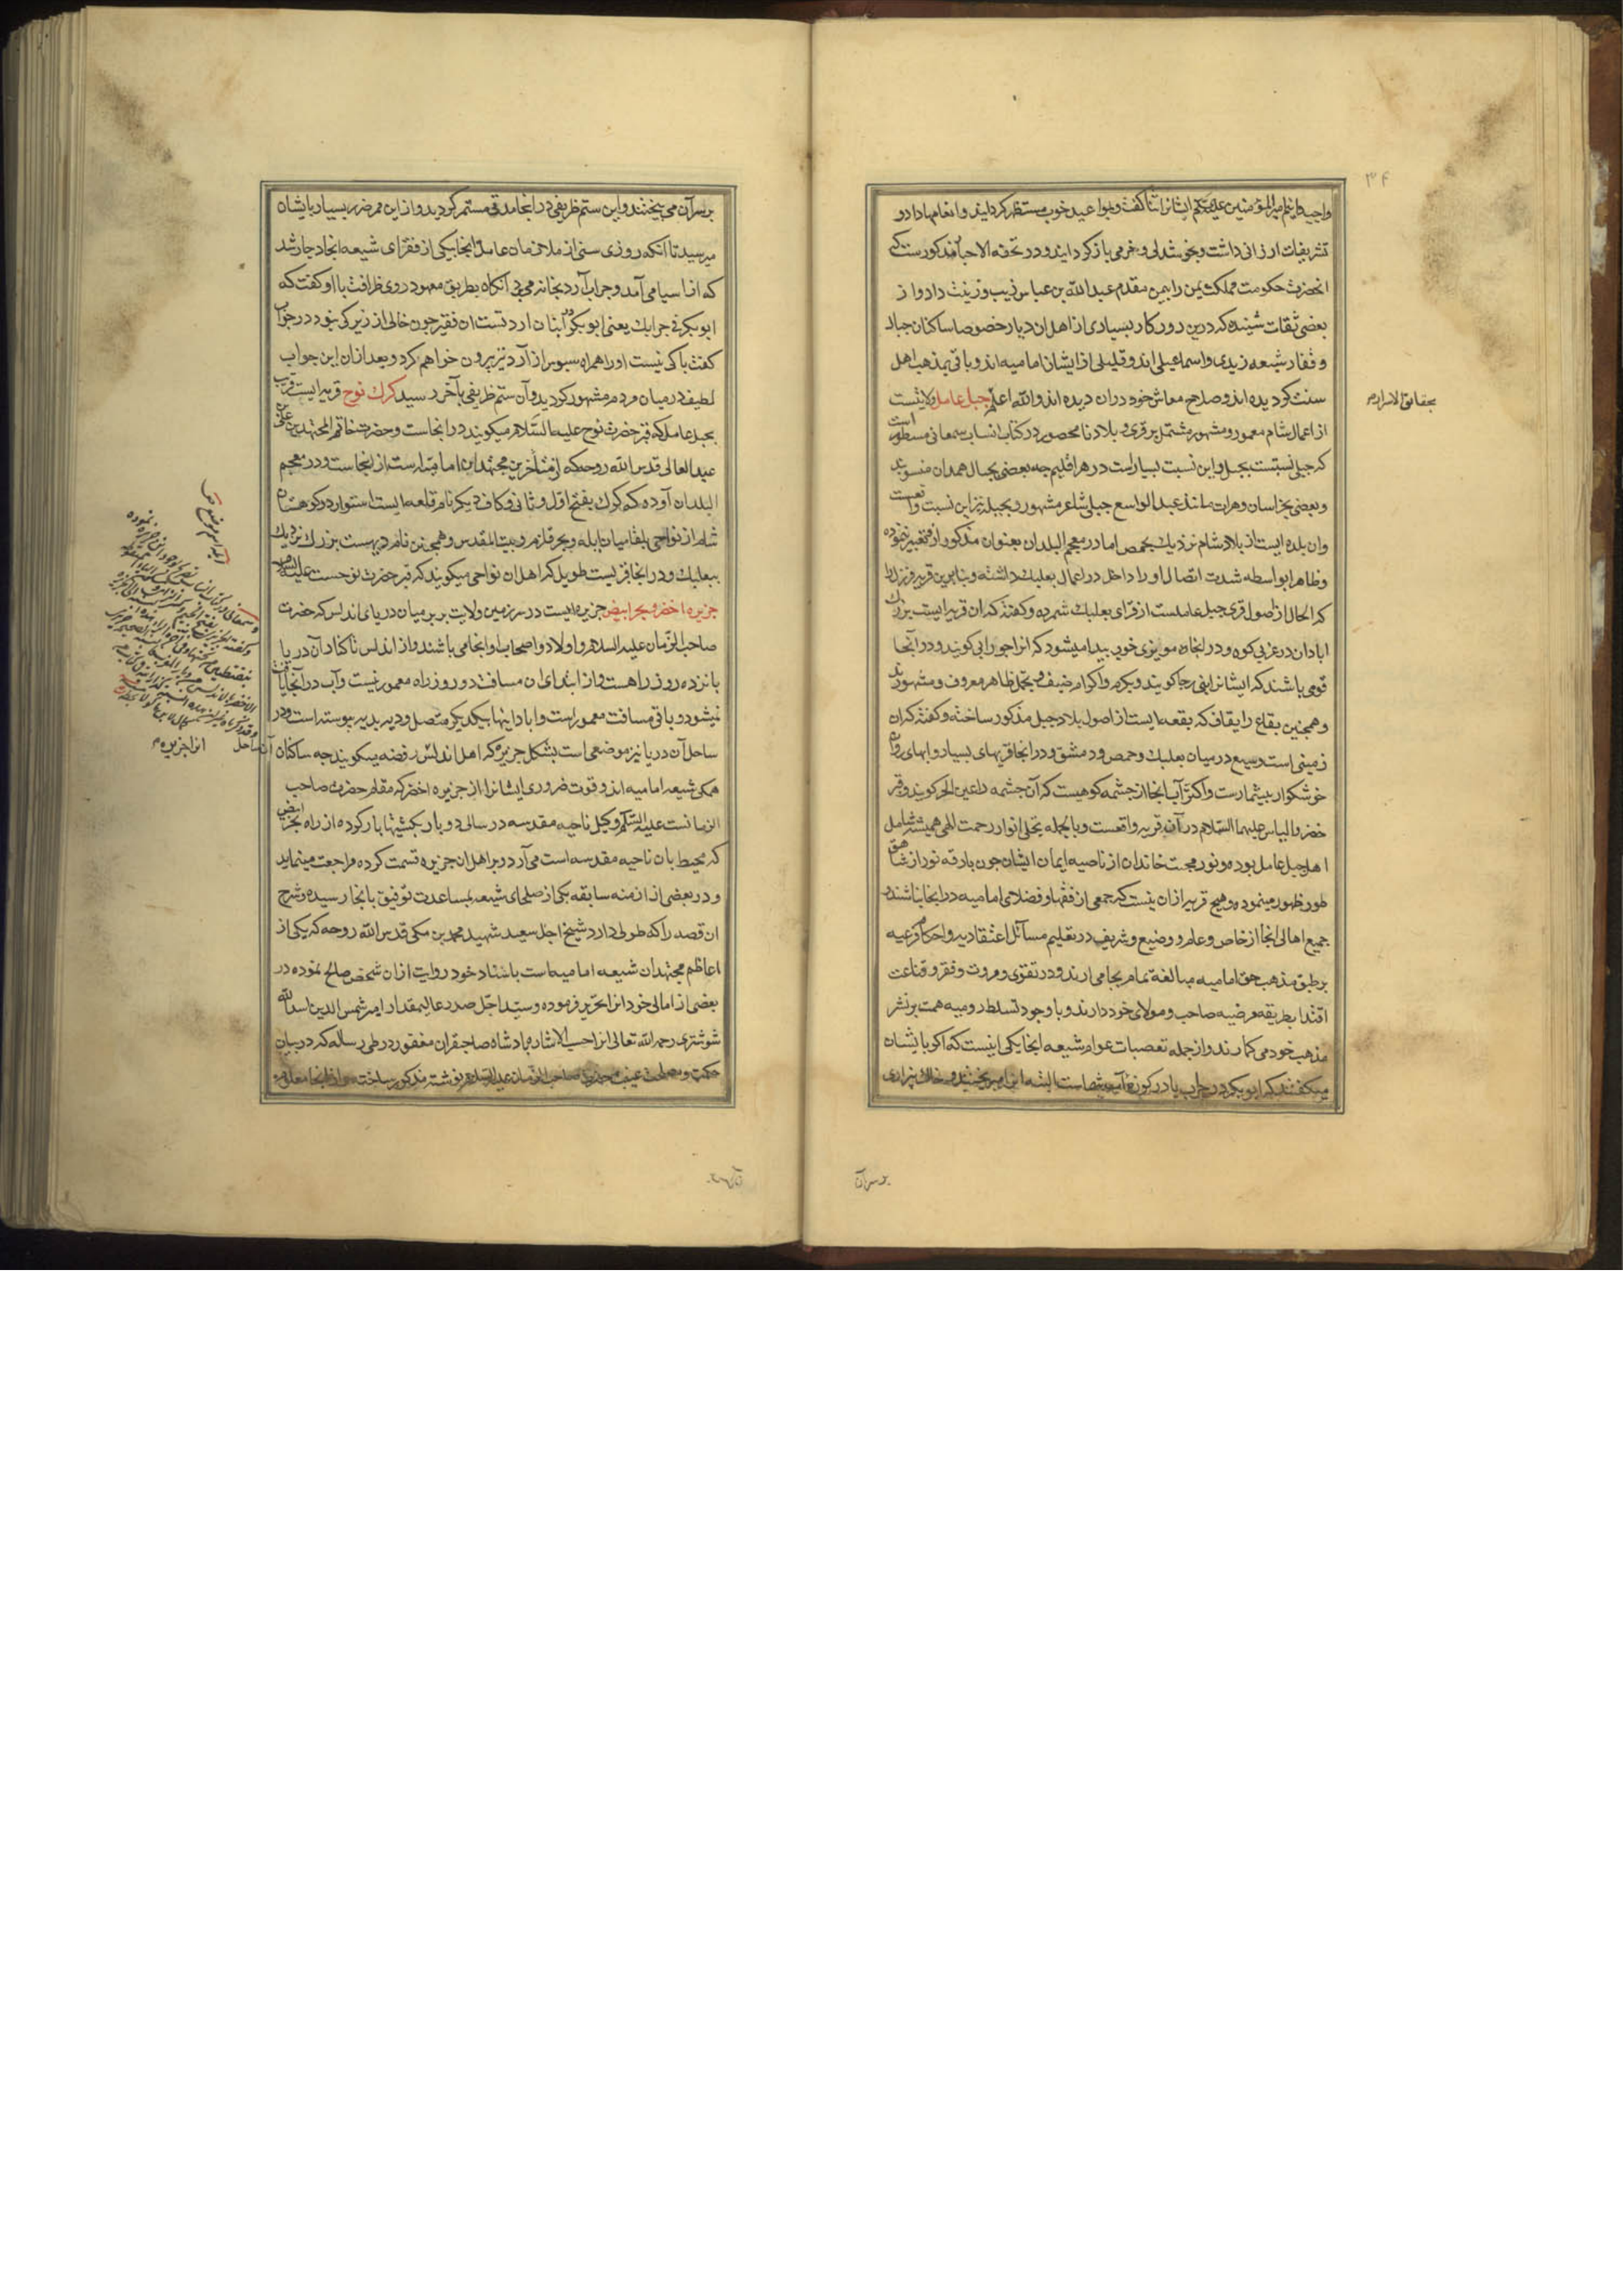 ۳۴
واجبیه قایم امیرالمؤمنین علیه السلم ایشانرا ثنا گفت و بمواعید خوب مستظهر گردانید و انعامها داد و
تشریفات ارزانی داشت و بخوشدلی و خرمی بازگردانید و در تحفه الاحبا مذکورست که
انحضرت حکومت مملکت یمن را بیمن مقدم عبدالله بن عباس زیب و زینت داد و از
بعضی ثقات شینده که درین روزکار بسیاری از اهل ان دیار خصوصا ساکنان جبال
و قفار شیعه زیدی و اسماعیلی اند و قلیلی از ایشان امامیه اند و باقی بمذهب اهل
سنت کردیده اند و صلاح معاش خود دران دیده اند والله اعلم جبل عامل ولایتست
بحقایق الاسرار
از اعمال شام معمور و مشهور مشتمل بر قری و بلاد نامحصور در کتاب انساب سمعانی مسطور است
که جبلی نسبتست بجبل و این نسبت بسیار است در هر اقلیم چه بعضی بجبال همدان منسوبند
و بعضی بخراسان و هرات مانند عبدالواسع جبلی شاعر مشهور و بجبله نیز این نسبت واقعست
وان بلده ایست از بلاد شام نزدیک بحمص اما در معجم البلدان بعنوان مذکور ازو تعبیر ننموده
و ظاهرا بواسطه شدت اتصال او را داخل در اعمال بعلبک داشته و بنابرین قریه فرزل را
که الحال از اصول قری جبل عاملست از قرای بعلبک شمرده و کفته که ان قریه ایست بزرک
ابادان در غربی کوه و در انجا مویزی خوب پیدا میشود که انرا جورابی کویند و در آنجا
قومی باشند که ایشانرا بنی رجا کویند و بکرم و اکرام ضیف و تجمل ظاهر معروف و مشهورند
و همچنین بقاع را بقاف که بقعه ایست از اصول بلاد جبل مذکور ساخته و کفته که ان
زمینی است وسیع در میان بعلبک و حمص و دمشق و در انجا قریهای بسیار و ابهای روان
خوشکوار بیشمارست و اکثر آب انجا از چشمه کوهیست که آن چشمه را عین الجر کویند و قبر
خضر و الیاس علیهما السّلام در آن قریه واقعست و بالجمله تجلی انوار رحمت الهی همیشه شامل
اهل جبل عامل بوده و نور محبت خاندان از ناصیه ایمان ایشان چون بارقه نور از شاهق
طور ظهور مینموده و هیچ قریه ازان نیست که جمعی از فقها و فضلای امامیه در انجا نباشند و
جمیع اهالی انجا از خاص و عام و وضیع و شریف در تعلیم مسآئل اعتقادیه و احکام فرعیه
بر طبق مذهب حق امامیه مبالغه تمام بجا می ارند و در تقوی و مروت و فقر و قناعت
اقتدا بطریقه مرضیه صاحب و مولای خود دارند و با وجود تسلط رومیه همت بر نشر
مذهب خود می کمارند و از جمله تعصبات عوام شیعه انجا یکی اینست که اکر بایشان
میکفتند که ابوبکر در جراب یا در کوزه آب شماست البته انرا میریختند و خاک بیزاری
بر سر آن
بر سر آن می بیختند و این ستم ظریفی در انجا مدتی مستمر کردید و از این ممر ضرر بسیار بایشان
میرسید تا انکه روزی سنی از ملازمان عامل انجا بیکی از فقرای شیعه انجا دچار شد
که از اسیا می آمد و جراب آرد بخانه می برد آنکاه بطریق معهود روی ظرافت باو کفت که
ابوبکر فی جرابک یعنی ابوبکر در انبان ارد تست ان فقیر چون خالی از زیرکی نبود در جواب
کفت باکی نیست اورا همراه سبوس از آرد نیز بیرون خواهم کرد و بعد ازان این جواب
لطیف در میان مردم مشهور کردید و آن ستم ظریفی بآخر رسید کرک نوح قریه ایست قریب
بجبل عامل که قبر حضرت نوح علیه السّلام میکویند در انجاست و حضرت خاتم المجتهدین علی بن
عبدالعالی قدس الله روحه که از متاخرین مجتهدین امامیه است از انجاست و در معجم
البلدان آورده که کرک بفتح اول و ثانی و کاف دیکر نام قلعه ایست استوار در کوهستان
شام از نواحی بلقا میان ایله و بحر قلزم و بیت المقدس و همچنین نام دیهیست بزرک نزدیک
ببعلبک و در انجا قبریست طویل که اهل ان نواحی میکویند که قبر حضرت نوحست علیه السلام
جزیره اخضر و بحر ابیض جزیره ایست در سرزمین ولایت بربر میان دریای اندلس که حضرت
صاحب الزمان علیه السلام و اولاد و اصحاب او انجا می باشند و از اندلس تا کنار آن دریا
پانزده روز راهست و از ابتدای ان مسافت دو روز راه معمور نیست و آب در آنجا یافت
نمیشود و باقی مسافت معمور است و ابادانیها بیکدیکر متصل و دیه بدیه پیوسته است و در
ساحل آن دریا نیز موضعی است بشکل جزیره که اهل اندلس رفضه میکویند چه ساکنان آن ساحل
انرا جزیره
همکی شیعه امامیه اند و قوت ضروری ایشانرا از جزیره اخضر که مقام حضرت صاحب
الزمانست علیه السّلم وکیل ناحیه مقدسه در سالی دو بار بکشتیها بار کرده از راه بحر ابیض
که محیط بان ناحیه مقدسه است می آرد و بر اهل ان جزیره قسمت کرده مراجعت مینماید
و در بعضی از ازمنه سابقه یکی از صلحای شیعه بمساعدت توفیق بانجا رسیده و شرح
ان قصه را که طولی دارد شیخ اجل سعید شهید محمد بن مکی قدس الله روحه که یکی از
اعاظم مجتهدان شیعه امامیه است باسناد خود روایت ازان شخص صالح نموده در
بعضی از امالی خود انرا تحریر فرموده و سیّد اجل صدر عالیمقدار امیر شمس الدین اسدالله
شوشتری رحمه الله تعالی انرا حسب الاشاره پادشاه صاحبقران مغفور در طی رساله که در بیان
حکمت و مصلحت غیبت حضرت صاحب الزمان علیه السلام نوشته مذکور ساخته